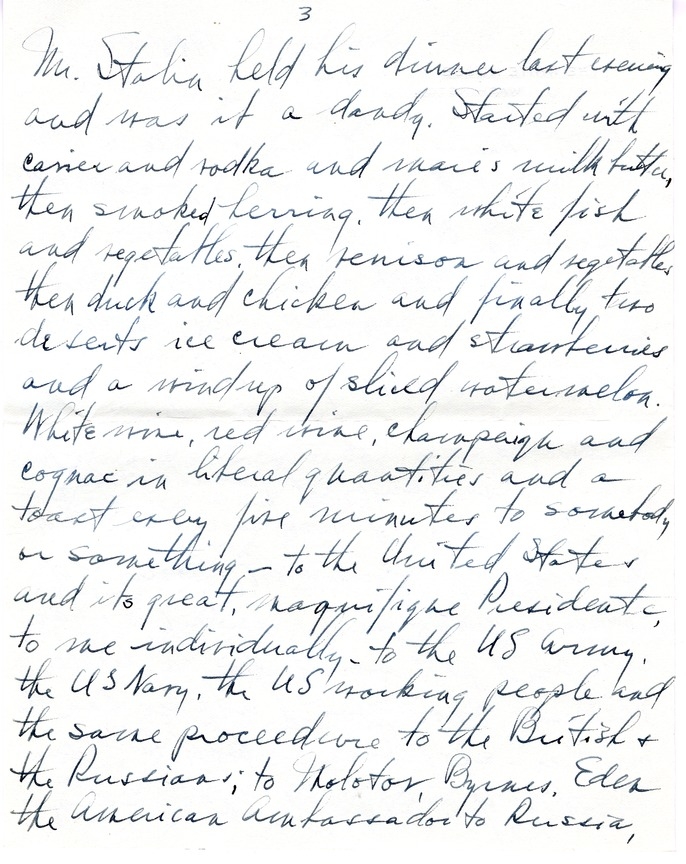 3
Mr. Stalin held his dinner last evening
and was it a dandy. Started with
cavier and vodka and mare's milk butter,
then smoked herring, then white fish
and vegetables, then venison and vegetables
then duck and chicken and finally two
deserts ice cream and strawberries
and a windup of sliced watermelon.
White wine, red wine, champaign and
cognac in liberal quantities and a
toast every five minutes to somebody
or something – to the United States
and its great, magnifique Presidente,
to me individually – to the US Army,
the US Navy, the US working people and
the same proceedure to the British &
the Russians; to Molotov, Byrnes, Eden
the American Ambassador to Russia,